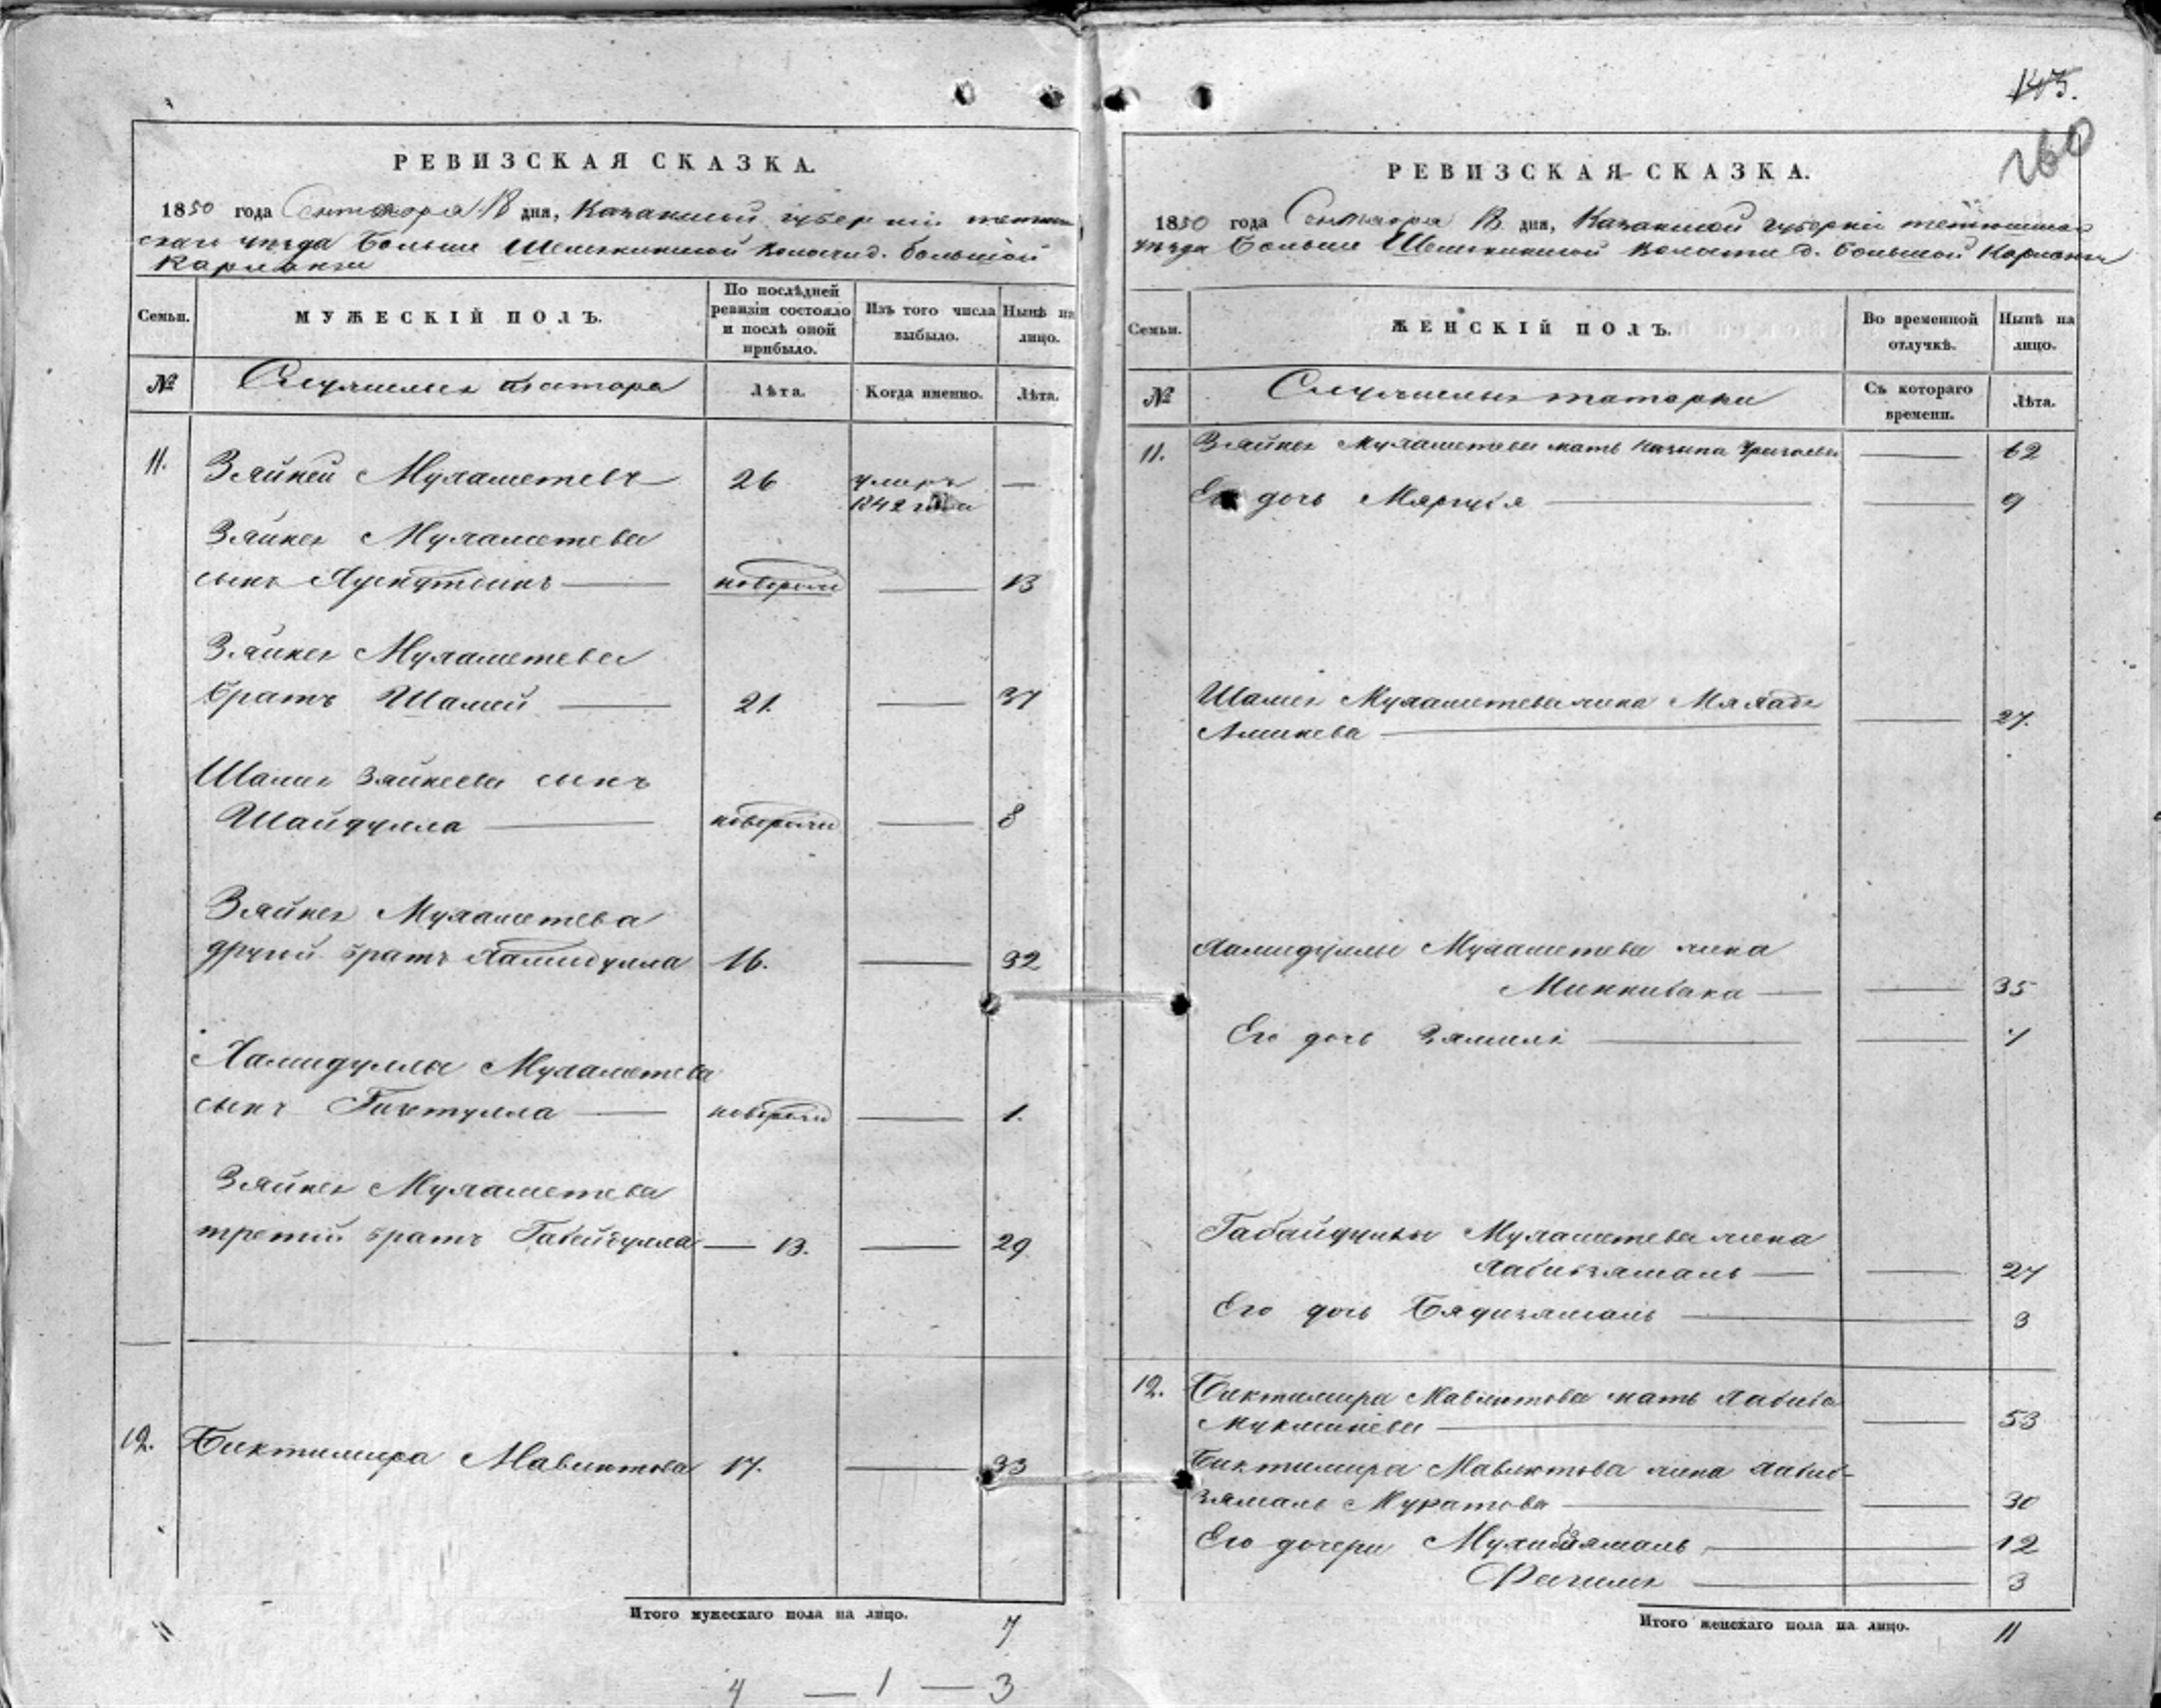 РЕВИЗСКАЯ СКАЗКА.
1850 года Сентября 18 дня, Казанской губерніи тетюш
скаго уѣзда Больше Шемякинской волости д. Большой
Карланги
Семьи. МУЖЕСКІЙ ПОЛЪ. По послѣдней ревизіи состояло и послѣ оной прибыло. Изъ того числа выбыло. Нынѣ на лицо.
№ Служилыя татара Лѣта. Когда именно. Лѣта.
11. Зяйней Мухаметевъ 26 умеръ —
1842 года
Зяйнея Мухаметева
сынъ новорож — 13
Зяйнея Мухаметева
братъ Шамей — 21. — 37
Шамея Зяйнеева сынъ
Шайдулла — новорож — 8
Зяйнея Мухаметева
другой братъ Хамидулла 16. — 32
Хамидуллы Мухаметева
сынъ — новорож — 1.
Зяйнея Мухаметева
третій братъ Габейдулла — 13. — 29
12. Биктимира Мавлютова 17. — 33
Итого мужескаго пола на лицо. 7
4 — 1 — 3
145.
160
РЕВИЗСКАЯ СКАЗКА.
1850 года Сентября 18 дня, Казанской губерніи тетюшскаго
уѣзда Больше Шемякинской волости д. Большой Карланги
Семьи. ЖЕНСКІЙ ПОЛЪ. Во временной отлучкѣ. Нынѣ на лицо.
№ Служилыя татарки Съ котораго времени. Лѣта.
11. Зяйнея Мухаметева мать — 62
Его дочь — — 9
Шамея Мухаметева жена
Аминева — — 27.
Хамидуллы Мухаметева жена
Миннибика — — 35
Его дочь Зямиля — — 7
Габайдуллы Мухаметева жена
Хабибзямаль — — 27
Его дочь Бядизямаль — 3
12. Биктимира Мавлютова мать Хабиба
— — 53
Биктимира Мавлютова жена Хабиб-
зямаль Муратова — — 30
Его дочери Мухибзямаль — 12
— 3
Итого женскаго пола на лицо. 11